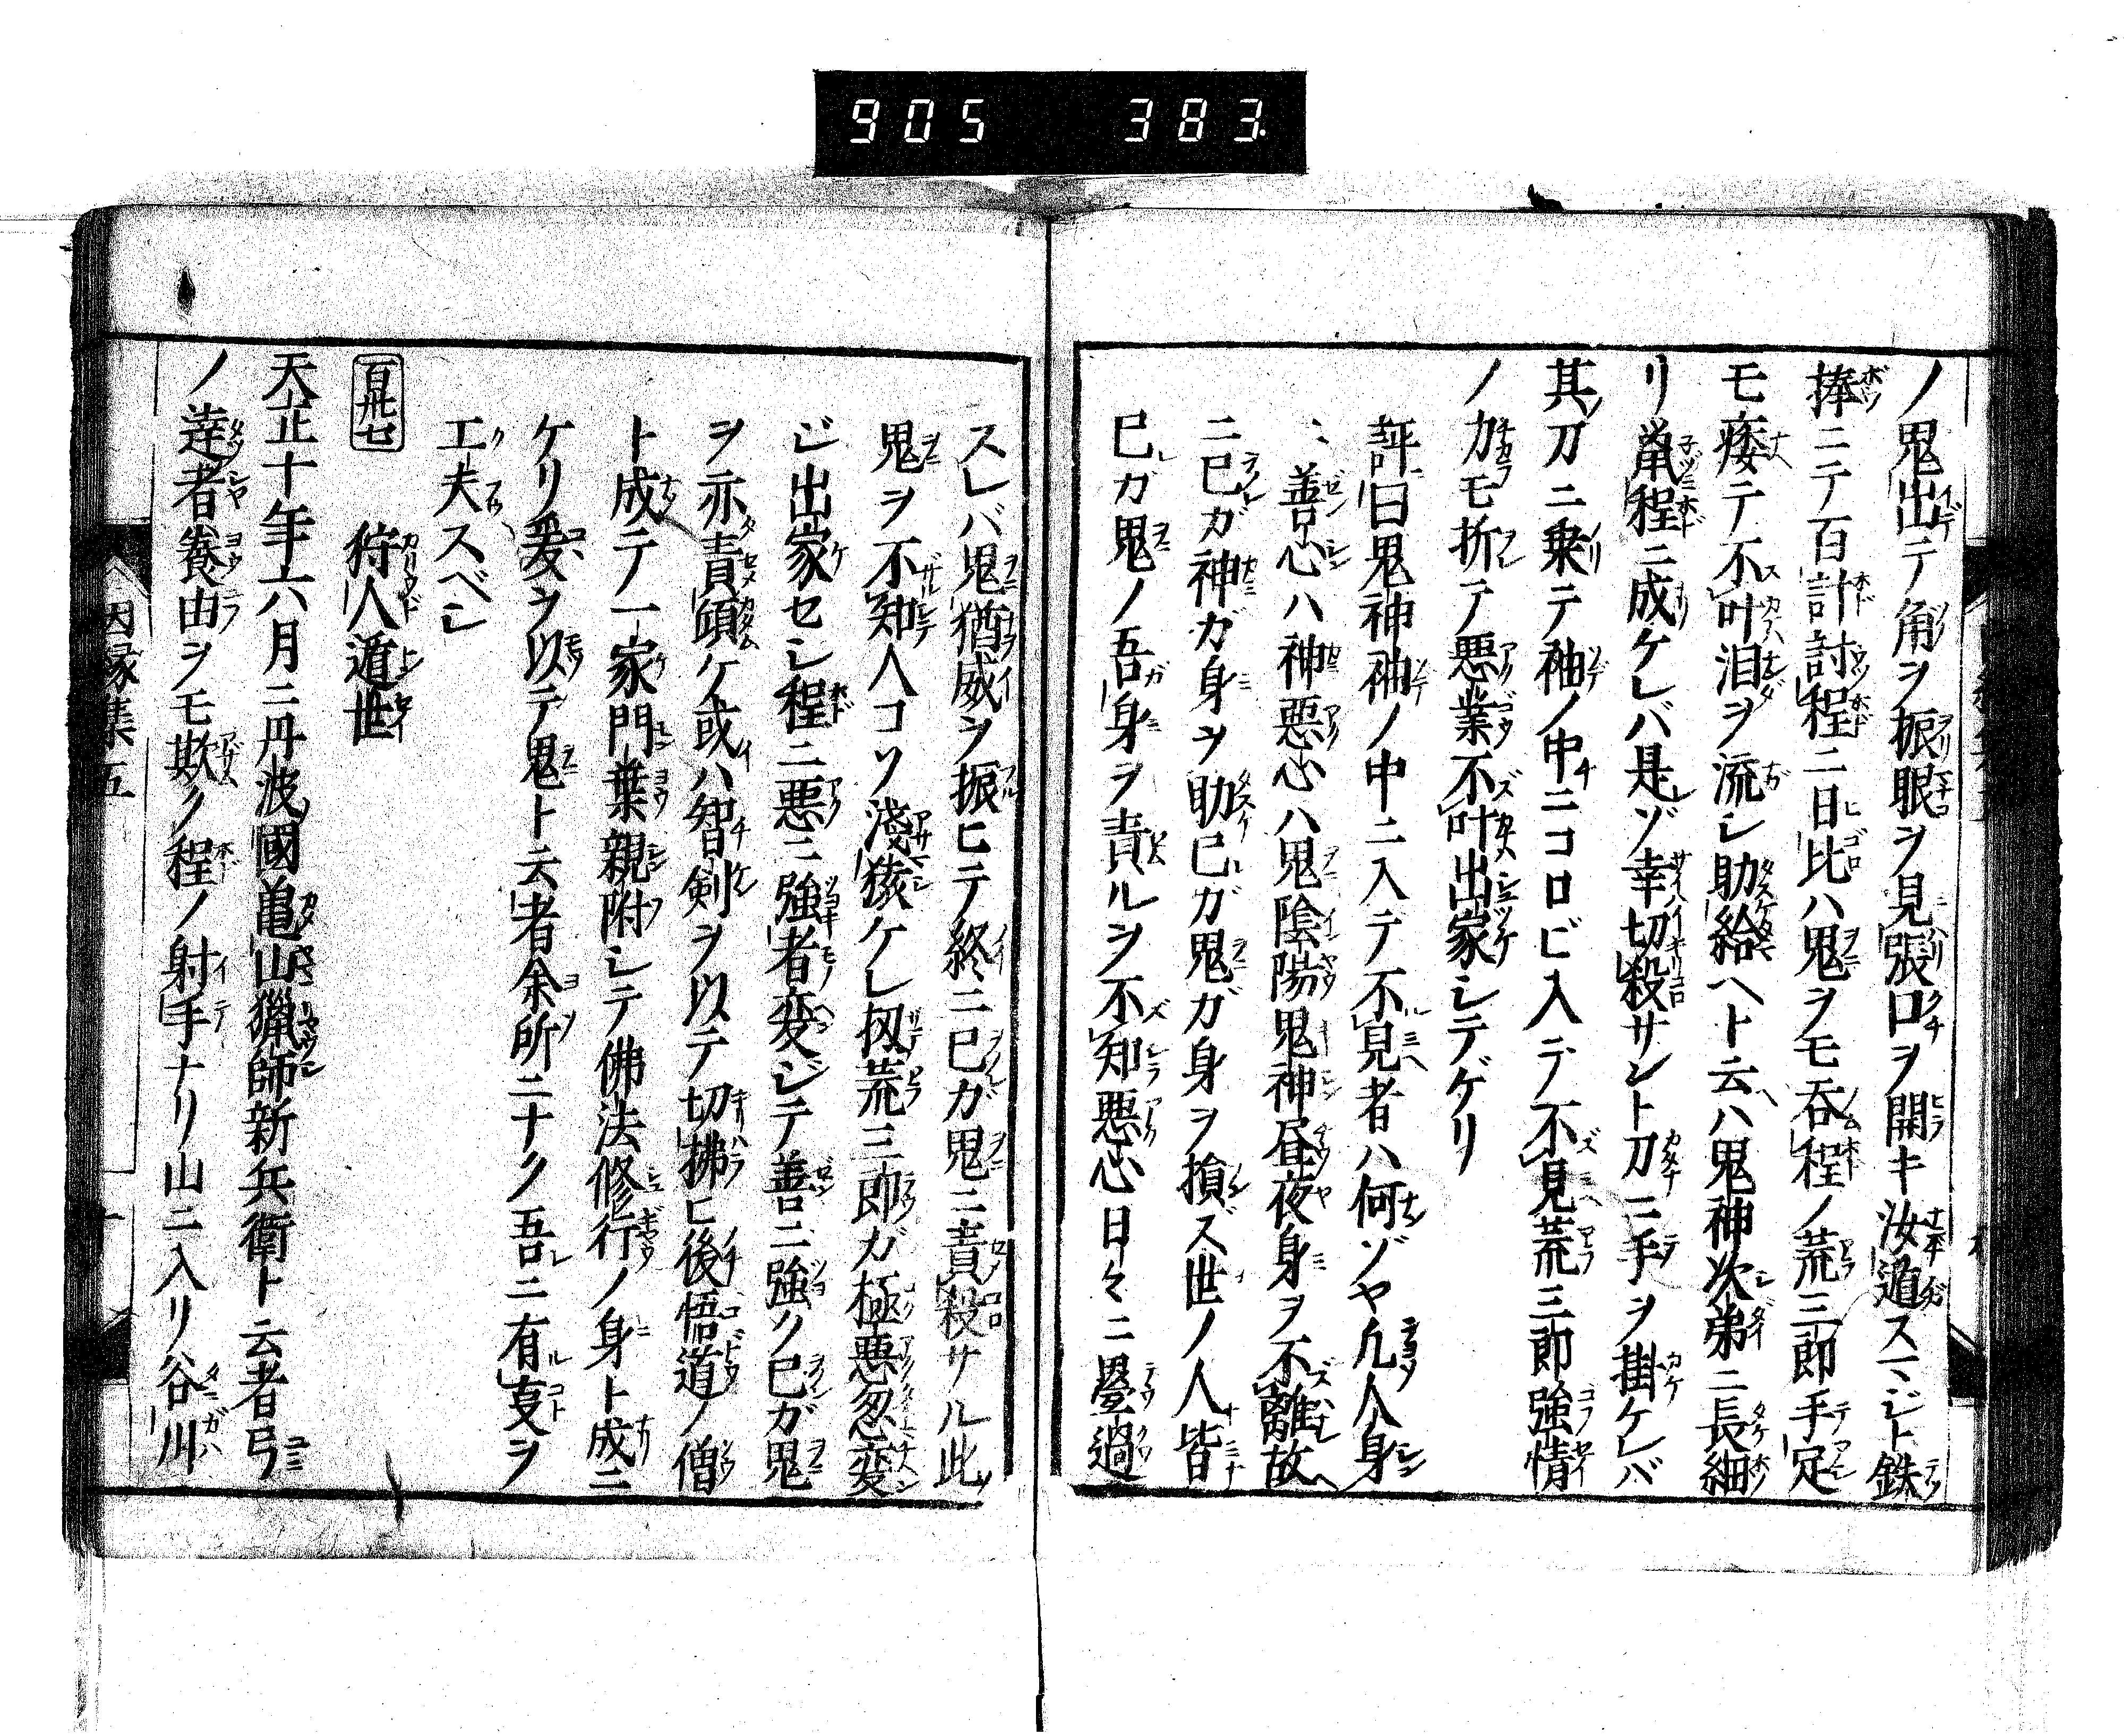 905 383.
ノ鬼出テ角ヲ振眼ヲ見張口ヲ開キ汝遁スマジト鉄
捧ニテ百計討程ニ日比ハ鬼ヲモ呑程ノ荒三郎手定
モ痿テ不叶泪ヲ流シ助給ヘト云ハ鬼神次第ニ長細
リ䑕程ニ成ケレバ是ゾ幸切殺サント刀ニ手ヲ掛ケレバ
其刀ニ乗テ袖ノ中ニコロビ入テ不見荒三郎強情
ノ力モ折テ悪業不叶出家シテゲリ
評曰鬼神袖ノ中ニ入テ不見者ハ何ゾヤ凢人身
ニ善心ハ神悪心ハ鬼陰陽鬼神昼夜身ヲ不離故
ニ己ガ神ガ身ヲ助己ガ鬼ガ身ヲ損ズ世ノ人皆
己ガ鬼ノ吾身ヲ責ルヲ不知悪心日々ニ畳過
スレバ鬼猶威ヲ振ヒテ終ニ己ガ鬼ニ責殺サル此
鬼ヲ不知人コソ淺猿ケレ扨荒三郎ガ極悪忽変
ジ出家セシ程ニ悪ニ強者変ジテ善ニ強ク己ガ鬼
ヲ亦責傾ケ或ハ智剣ヲ以テ切拂ヒ後悟道ノ僧
ト成テ一家門葉親附シテ佛法修行ノ身ト成ニ
ケリ爰ヲ以テ鬼ト云者余所ニナク吾ニ有叓ヲ
工夫スベシ
百卅七 狩人遁世
天正十年六月ニ丹波國亀山獵師新兵衛ト云者弓
ノ達者養由ヲモ欺ク程ノ射手ナリ山ニ入リ谷川
因縁集五